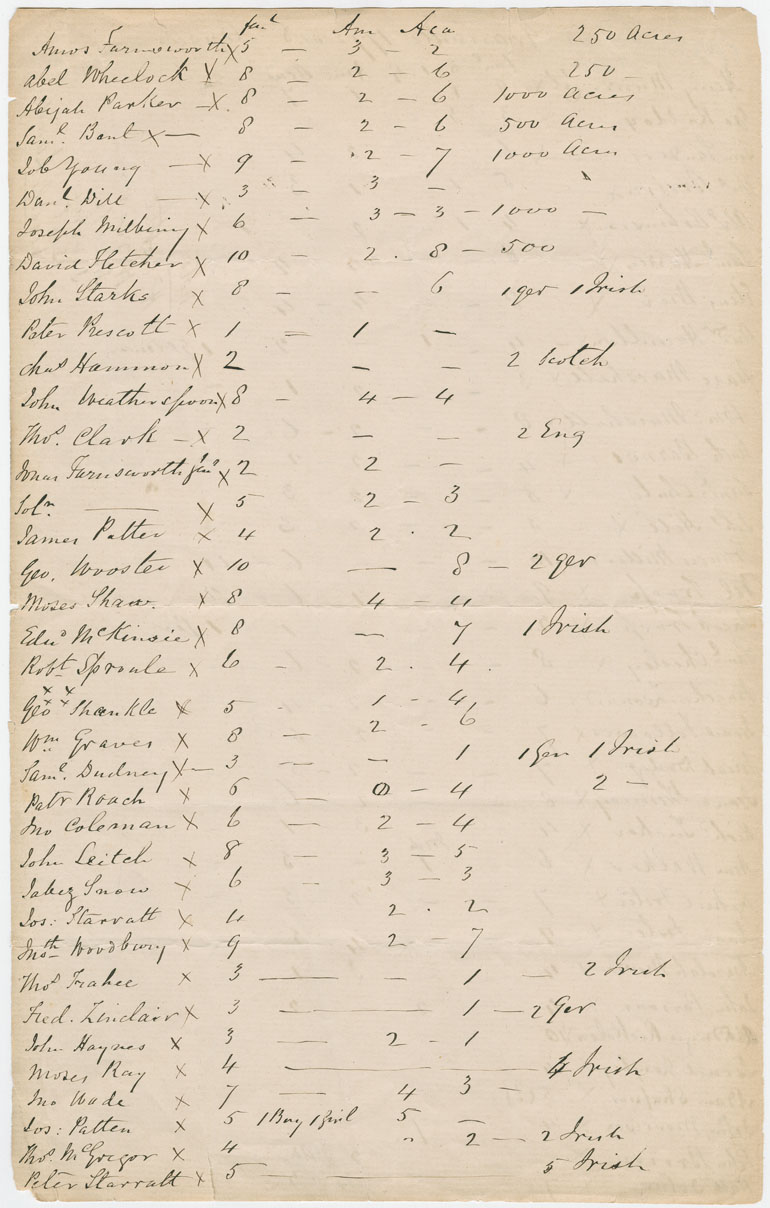 fam.l Am Aca
Amos Farnsworth X 5 — 3 — 2 250 Acres
Abel Wheelock X 8 — 2 — 6 250 —
Abijah Parker — X 8 — 2 — 6 1000 Acres
Saml. Bent X — 8 — 2 — 6 500 Acres
Job Young — X 9 — 2 — 7 1000 Acres
Danl. Dill — X 3 — 3 —
Joseph Milbury X 6 — 3 — 3 — 1000 —
David Fletcher X 10 — 2 . 8 — 500
John Starks X 8 — — 6 1 ger 1 Irish
Peter Prescott X 1 — 1 —
Chas Hammon X 2 — — 2 Scotch
John Weatherspoon X 8 — 4 — 4
Thos. Clark — X 2 — — 2 Eng
Jonas Farnsworth Junr X 2 2 —
Soln. —— X 5 2 — 3
James Patter X 4 2 . 2
Geo. Wooster X 10 — 8 — 2 ger
Moses Shaw. X 8 4 — 4
Edwd McKinsie X 8 — 7 1 Irish
Robt Sproule X 6 - 2 . 4 .
Geo Shankle X 5 - 1 — 4
Wm Graves X 8 — 2 - 6
Saml. Dudney X — 3 — — 1 1 Ger 1 Irish
Patr Roach X 6 — 0 — 4 2 —
Jno Coleman X 6 — 2 — 4
John Leitch X 8 — 3 — 5
Jabez Snow X 6 — 3 — 3
Jos: Starratt X 4 2 . 2
Jnoth Woodbury X 9 — 2 — 7
Thos Frahee X 3 —— — 1 — 2 Irish
Fred. Zinclair X 3 — —— 1 — 2 Ger
John Haynes X 3 — 2 — 1
Moses Ray X 4 —— —— 4 Irish
Jno Wade X 7 — 4 3 —
Jos: Patten X 5 1 Boy 1 Girl 5 —
Thos. McGregor X 4 " 2 — 2 Irish
Peter Starratt X 5 —— 5 Irish